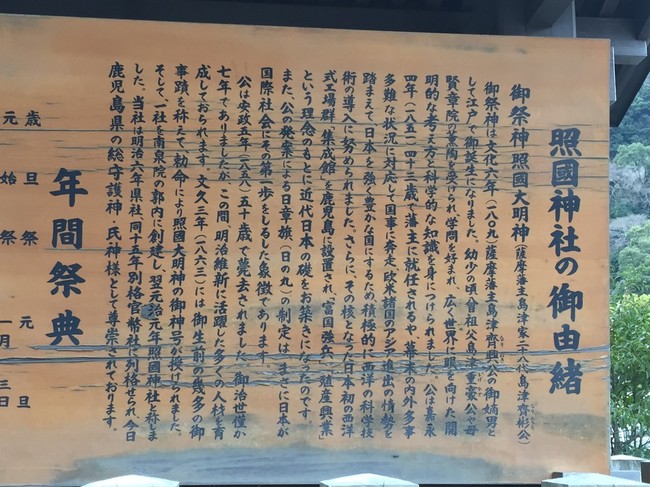 照國神社の御由緒
御祭神 照國大明神(薩摩藩主島津家二十八代島津齊彬公)
御祭神は文化六年(一八〇九)薩摩藩主島津齊興公の御嫡男と
して江戸で御誕生になりました。幼少の頃曾祖父島津重豪公や母
賢章院の薫陶を受けられ、学問を好まれ、広く世界に眼を向けた開
明的な考え方と科学的な知識を身につけられました。公は嘉永
四年(一八五一)四十三歳で藩主に就任されるや、幕末の内外多事
多難な状況に対応して国事に奔走、欧米諸国のアジア進出の情勢を
踏まえて、日本を強く豊かな国にするため、積極的に西洋の科学技
術の導入に努められました。さらに、その核となった日本初の西洋
式工場群「集成館」を鹿児島に設置され、「富国強兵」、「殖産興業」
という理念のもとに近代日本の礎をお築きになったのです。
また、公の発案による日章旗(日の丸)の制定は、まさに日本が
国際社会にその第一歩をしるした象徴であります。
公は安政五年(一八五八)五十歳で薨去されました。御治世僅か
七年でありましたが、この間、明治維新に活躍した多くの人材を育
成しておられます。文久三年(一八六三)には御生前の幾多の御
事蹟を称えて、勅命により照國大明神の御神号が授けられました。
そして、一社を南泉院の郭内に創建し、翌元治元年照國神社と称しま
した。当社は明治六年県社、同十五年別格官幣社に列格せられ、今日
鹿児島県の総守護神・氏神様として尊崇されております。
年間祭典
歳旦祭 元旦
元始祭 一月三日